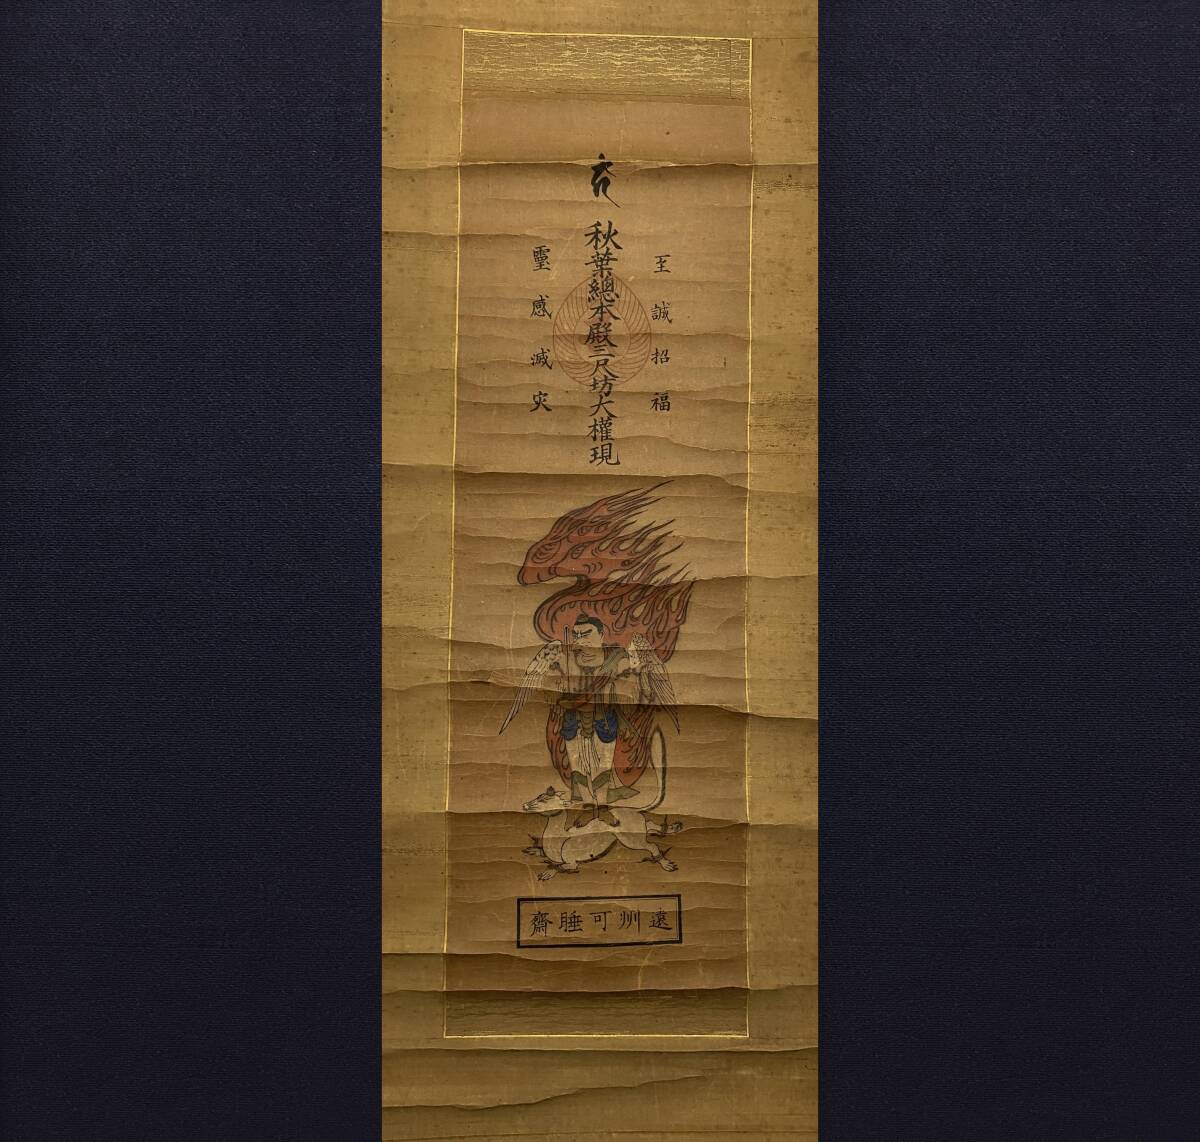 至誠招福
秋葉總本殿三尺坊大權現
靈感滅災
遠州可睡齋